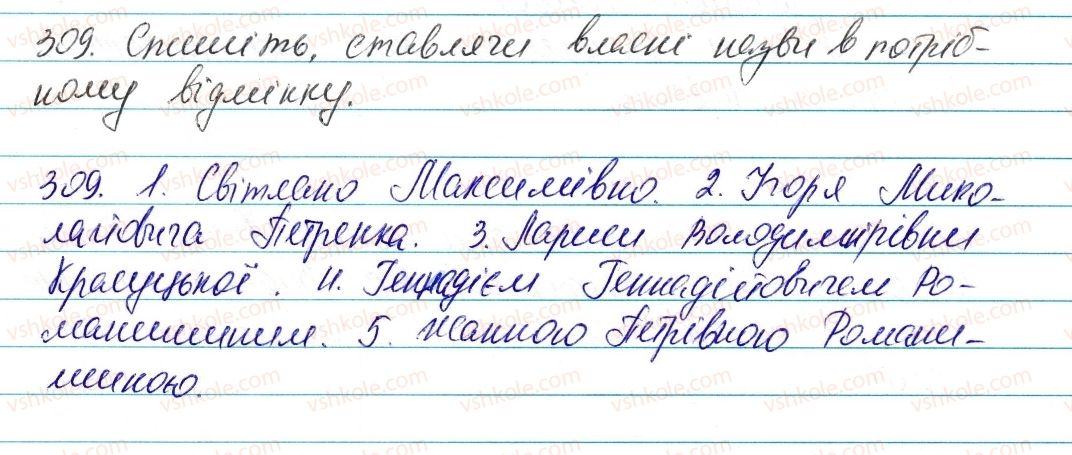 309. Спишіть, ставлячи власні назви в потріб-
ному відмінку.
309. 1. Світлано Максимівно. 2. Ігоря Мико-
лайовича Петренка. 3. Лариси Володимирівни
Красуцької. 4. Геннадієм Геннадійовичем Ро-
манишиним. 5. Жанною Петрівною Романи-
шиною.